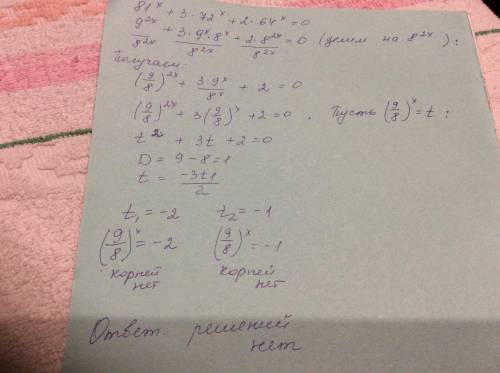 81ˣ + 3·72ˣ + 2·64ˣ = 0
9²ˣ/8²ˣ + 3·9ˣ·8ˣ/8²ˣ + 2·8²ˣ/8²ˣ = 0 (делим на 8²ˣ):
Получаем:
(9/8)²ˣ + 3·9ˣ/8ˣ + 2 = 0
(9/8)²ˣ + 3(9/8)ˣ + 2 = 0. Пусть (9/8)ˣ = t:
t² + 3t + 2 = 0
D = 9 - 8 = 1
t = -3±1/2
t₁ = -2 t₂ = -1
(9/8)ˣ = -2 (9/8)ˣ = -1
корней нет корней нет
Ответ. решений
нет